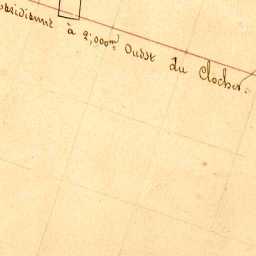 à 2,000m Ouest du Clocher.